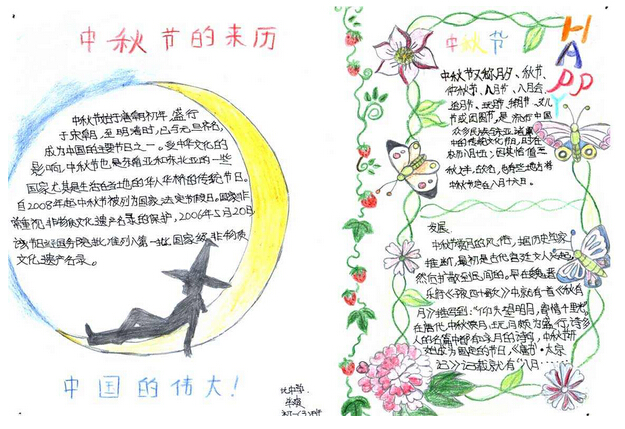 中秋节的来历
中秋节始于唐朝初年,盛行
于宋朝,至明清时,已与元旦齐名,
成为中国的主要节日之一。受中华文化的
影响,中秋节也是东南亚和东北亚的一些
国家尤其是生活在当地的华人华侨的传统节日。
自2008年起中秋节被列为国家法定节假日。国家非
常重视非物质文化遗产名录的保护,2006年5月20日
该节日经国务院批准列入第一批国家级非物质
文化遗产名录。
中国的伟大!
中秋节
HAPPY
中秋节又称月夕、秋节、
仲秋节、八月节、八月会、
追月节、玩月节、拜月节、女儿
节或团圆节,是流行于中国
众多民族与东亚诸国
中的传统文化节日,时在
农历八月十五;因其恰值三
秋之半,故名,也有些地方将
中秋节定在八月十六日。
发展
中秋节赏月的风俗,据历史学家
推断,最初是古代宫廷文人兴起,
然后扩散到民间的。早在魏晋
乐府《子夜四十歌》中就有一首《秋有
月》描写到:“仰头望明月,寄情千里光。”
在唐代,中秋赏月、玩月颇为盛行,许多
人的名篇中都有咏月的诗句,中秋节开
始成为固定的节日,《唐书·太宗
记》记载就有“八月……